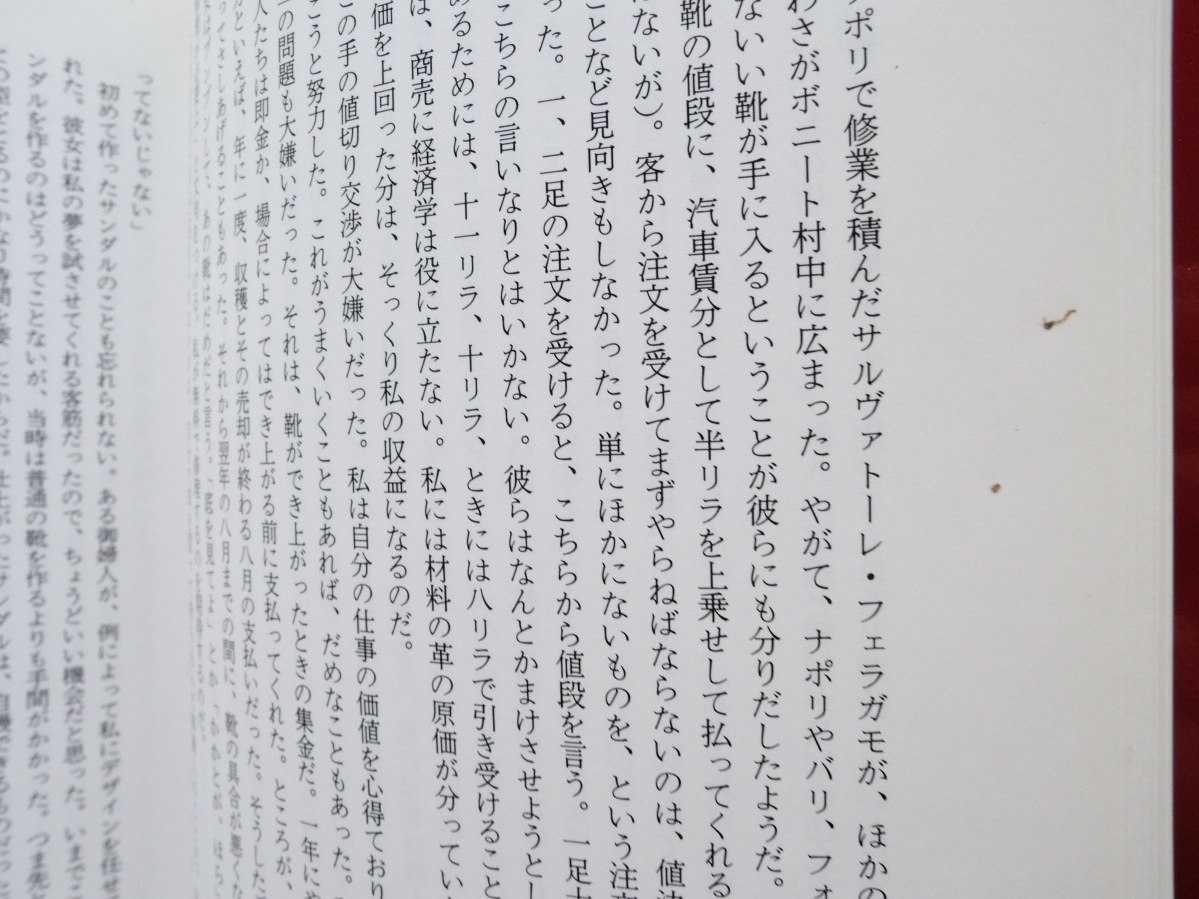 ポリで修業を積んだサルヴァトーレ・フェラガモが、ほかの
わさがボニート村中に広まった。やがて、ナポリやバリ、フォ
ないい靴が手に入るということが彼らにも分りだしたようだ。
靴の値段に、汽車賃分として半リラを上乗せして払ってくれる
ないが)。客から注文を受けてまずやらねばならないのは、値決
ことなど見向きもしなかった。単にほかにないものを、という注文
った。一、二足の注文を受けると、こちらから値段を言う。一足十
こちらの言いなりとはいかない。彼らはなんとかまけさせようとし
めるためには、十一リラ、十リラ、ときには八リラで引き受けること
は、商売に経済学は役に立たない。私には材料の革の原価が分ってい
価を上回った分は、そっくり私の収益になるのだ。
この手の値切り交渉が大嫌いだった。私は自分の仕事の価値を心得ており
こうと努力した。これがうまくいくこともあれば、だめなこともあった。
の問題も大嫌いだった。それは、靴ができ上がったときの集金だ。一年にや
人たちは即金か、場合によってはでき上がる前に支払ってくれた。ところが、
といえば、年に一度、収穫とその売却が終わる八月の支払いだった。そうした
ってさしあげることもあった。それから翌年の八月までの間に、靴の具合が悪くな
あの靴はだめだと言う。「底を見てよ」とか「かかとが、ほら、
ってないじゃない」
初めて作ったサンダルのことも忘れられない。ある御婦人が、例によって私にデザインを任せ
れた。彼女は私の夢を試させてくれる客筋だったので、ちょうどいい機会だと思った。いまでこ
ンダルを作るのはどうってことないが、当時は普通の靴を作るよりも手間がかかった。つま先